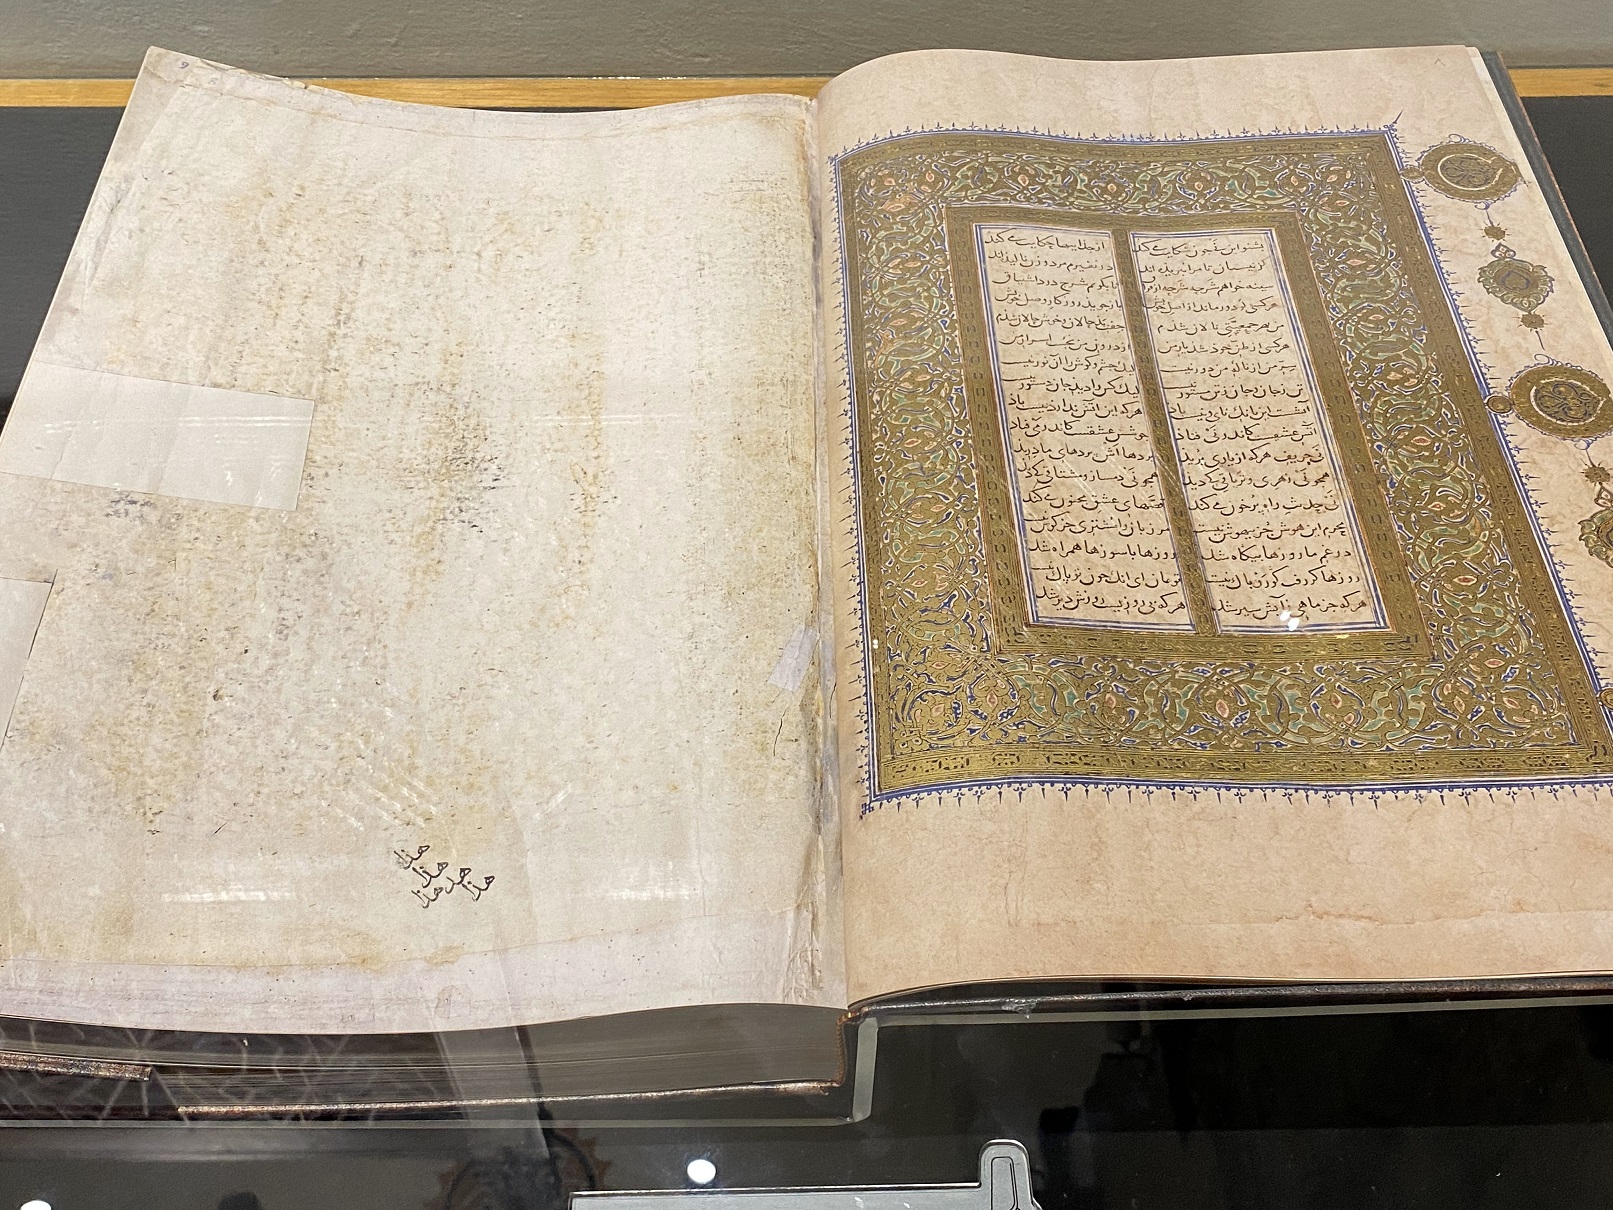 بشنو این نی چون شکایت می کند از جداییها حکایت می کند
کز نیستان تا مرا ببریده اند در نفیرم مرد و زن نالیده اند
سینه خواهم شرحه شرحه از فراق تا بگویم شرح درد اشتیاق
هر کسی کو دور ماند از اصل خویش باز جوید روزگار وصل خویش
من بهر جمعیتی نالان شدم جفت بدحالان و خوش حالان شدم
هر کسی از ظن خود شد یار من از درون من نجست اسرار من
سر من از ناله من دور نیست لیک چشم و گوش را آن نور نیست
تن ز جان و جان ز تن مستور نیست لیک کس را دید جان دستور نیست
آتشست این بانگ نای و نیست باد هر که این آتش ندارد نیست باد
آتش عشقست کاندر نی فتاد جوشش عشقست کاندر می فتاد
نی حریف هر که از یاری برید پردهااش پردهای ما درید
همچو نی زهری و تریاقی که دید همچو نی دمساز و مشتاقی که دید
نی حدیث راه پر خون می کند قصهای عشق مجنون می کند
محرم این هوش جز بیهوش نیست مر زبان را مشتری جز گوش نیست
در غم ما روزها بیگاه شد روزها با سوزها همراه شد
روزها گر رفت گو رو باک نیست تو بمان ای آنک چون تو پاک نیست
هر که جز ماهی ز آبش سیر شد هر که بی روزیست روزش دیر شد
هذا
هذا
هذا هد هذا